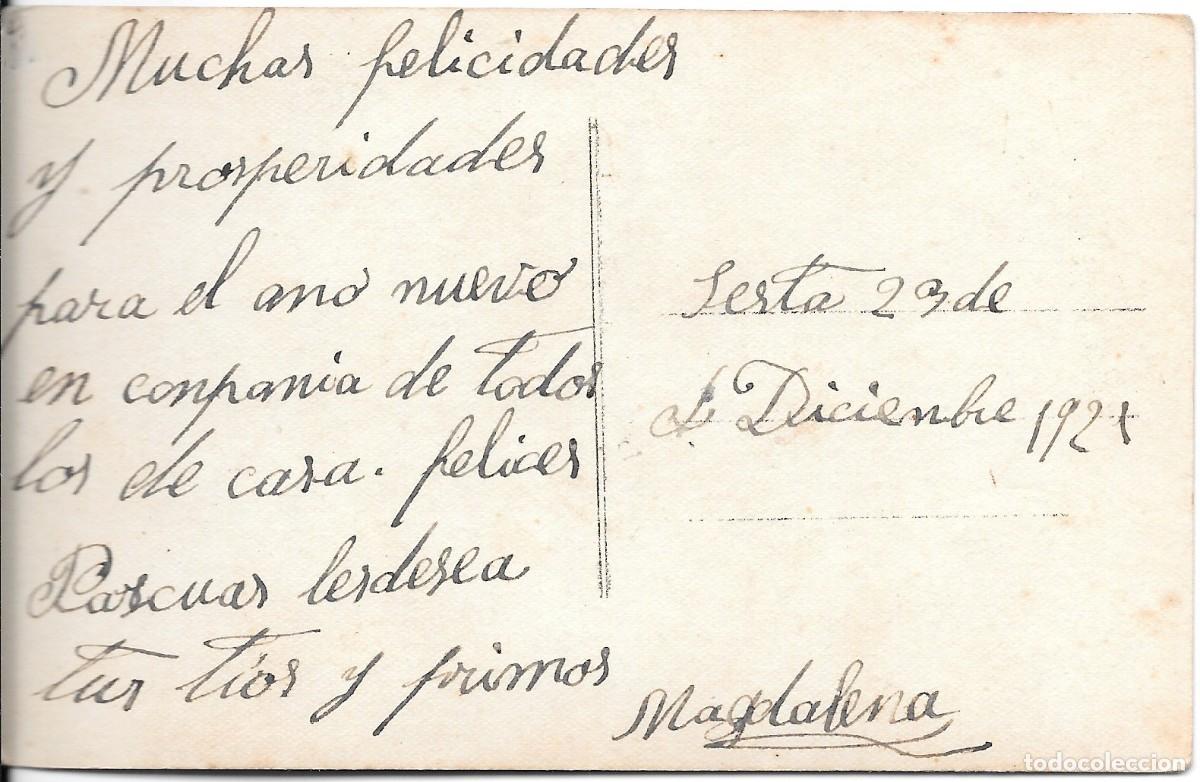 Muchas felicidades
y prosperidades
para el ano nuevo
en conpania de todos
los de casa. felices
Pascuas lesdesea
tus tíos y primos
Magdalena
Sesta 23 de
Diciembre 1921
todocoleccion